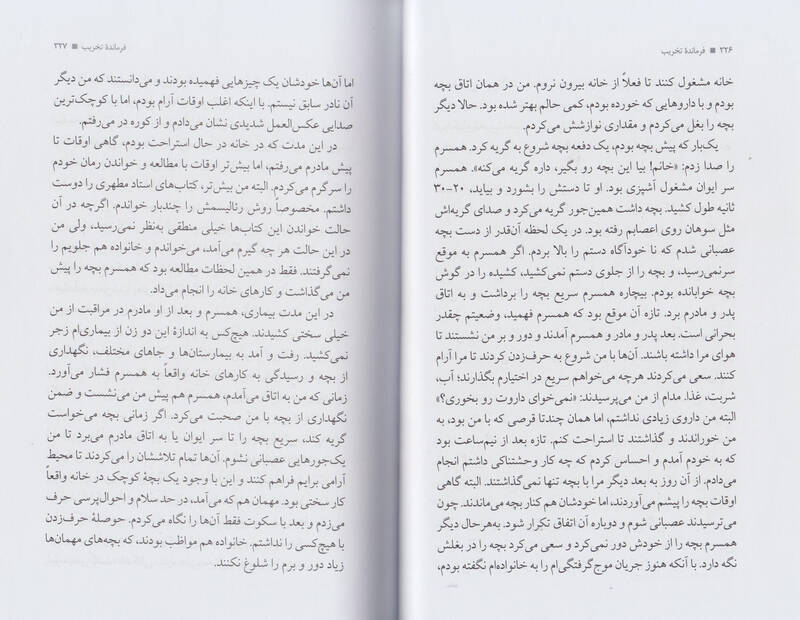 ۳۲۶ ■ فرماندهٔ تخریب
خانه مشغول کنند تا فعلاً از خانه بیرون نروم. من در همان اتاق بچه
بودم و با داروهایی که خورده بودم، کمی حالم بهتر شده بود. حالا دیگر
بچه را بغل می‌کردم و مقداری نوازشش می‌کردم.
یک‌بار که پیش بچه بودم، یک دفعه بچه شروع به گریه کرد. همسرم
را صدا زدم: «خانم! بیا این بچه رو بگیر، داره گریه می‌کنه». همسرم
سر ایوان مشغول آشپزی بود. او تا دستش را بشورد و بیاید، ۲۰-۳۰
ثانیه طول کشید. بچه داشت همین‌جور گریه می‌کرد و صدای گریه‌اش
مثل سوهان روی اعصابم رفته بود. در یک لحظه آن‌قدر از دست بچه
عصبانی شدم که نا خودآگاه دستم را بالا بردم. اگر همسرم به موقع
سرنمی‌رسید، و بچه را از جلوی دستم نمی‌کشید، کشیده را در گوش
بچه خوابانده بودم. بیچاره همسرم سریع بچه را برداشت و به اتاق
پدر و مادرم برد. تازه آن موقع بود که همسرم فهمید، وضعیتم چقدر
بحرانی است. بعد پدر و مادر و همسرم آمدند و دور و بر من نشستند تا
هوای مرا داشته باشند. آن‌ها با من شروع به حرف‌زدن کردند تا مرا آرام
کنند. سعی می‌کردند هرچه می‌خواهم سریع در اختیارم بگذارند؛ آب،
شربت، غذا. مدام از من می‌پرسیدند: «نمی‌خوای داروت رو بخوری؟»
البته من داروی زیادی نداشتم، اما همان چندتا قرصی که با من بود، به
من خوراندند و گذاشتند تا استراحت کنم. تازه بعد از نیم‌ساعت بود
که به خودم آمدم و احساس کردم که چه کار وحشتناکی داشتم انجام
می‌دادم. از آن روز به بعد دیگر مرا با بچه تنها نمی‌گذاشتند. البته گاهی
اوقات بچه را پیشم می‌آوردند، اما خودشان هم کنار بچه می‌ماندند. چون
می‌ترسیدند عصبانی شوم و دوباره آن اتفاق تکرار شود. به‌هرحال دیگر
همسرم بچه را از خودش دور نمی‌کرد و سعی می‌کرد بچه را در بغلش
نگه دارد. با آنکه هنوز جریان موج‌گرفتگی‌ام را به خانواده‌ام نگفته بودم،
فرماندهٔ تخریب ■ ۳۲۷
اما آن‌ها خودشان یک چیزهایی فهمیده بودند و می‌دانستند که من دیگر
آن نادر سابق نیستم. با اینکه اغلب اوقات آرام بودم، اما با کوچک‌ترین
صدایی عکس‌العمل شدیدی نشان می‌دادم و از کوره در می‌رفتم.
در این مدت که در خانه در حال استراحت بودم، گاهی اوقات تا
پیش مادرم می‌رفتم، اما بیش‌تر اوقات با مطالعه و خواندن رمان خودم
را سرگرم می‌کردم. البته من بیش‌تر، کتاب‌های استاد مطهری را دوست
داشتم. مخصوصاً روش رئالیسمش را چندبار خواندم. اگرچه در آن
حالت خواندن این کتاب‌ها خیلی منطقی به‌نظر نمی‌رسید، ولی من
در این حالت هر چه گیرم می‌آمد، می‌خواندم و خانواده هم جلویم را
نمی‌گرفتند. فقط در همین لحظات مطالعه بود که همسرم بچه را پیش
من می‌گذاشت و کارهای خانه را انجام می‌داد.
در این مدت بیماری، همسرم و بعد از او مادرم در مراقبت از من
خیلی سختی کشیدند. هیچ‌کس به اندازهٔ این دو زن از بیماری‌ام زجر
نمی‌کشید. رفت و آمد به بیمارستان‌ها و جاهای مختلف، نگهداری
از بچه و رسیدگی به کارهای خانه واقعاً به همسرم فشار می‌آورد.
زمانی که من به اتاق می‌آمدم، همسرم هم پیش من می‌نشست و ضمن
نگهداری از بچه با من صحبت می‌کرد. اگر زمانی بچه می‌خواست
گریه کند، سریع بچه را تا سر ایوان یا به اتاق مادرم می‌برد تا من
یک‌جورهایی عصبانی نشوم. آن‌ها تمام تلاششان را می‌کردند تا محیط
آرامی برایم فراهم کنند و این با وجود یک بچهٔ کوچک در خانه واقعاً
کار سختی بود. مهمان هم که می‌آمد، در حد سلام و احوال‌پرسی حرف
می‌زدم و بعد با سکوت فقط آن‌ها را نگاه می‌کردم. حوصلهٔ حرف‌زدن
با هیچ‌کسی را نداشتم. خانواده هم مواظب بودند، که بچه‌های مهمان‌ها
زیاد دور و برم را شلوغ نکنند.